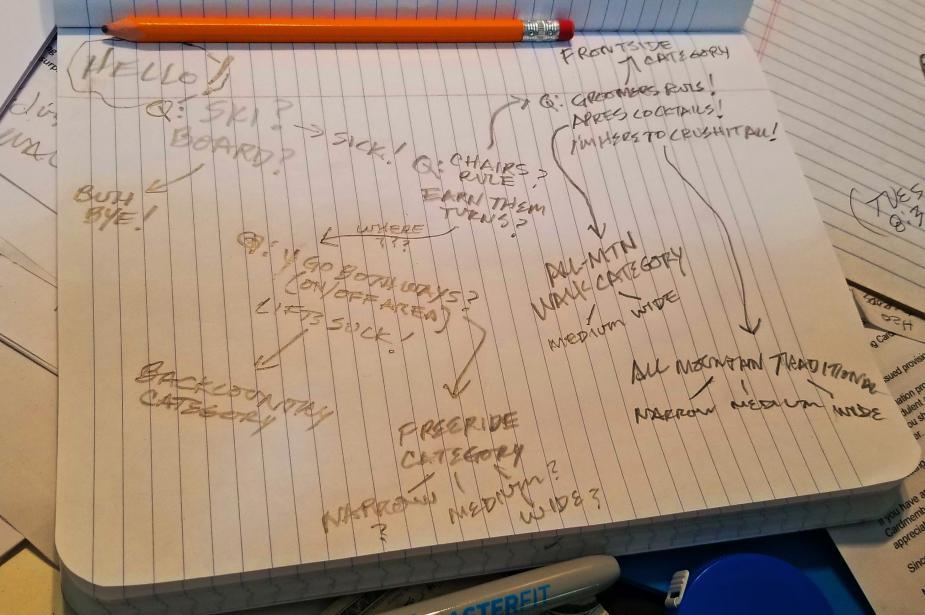 HELLO!
Q: SKI?
BOARD?
→ SICK!
BUH
BYE!
Q: CHAIRS
RULE?
EARN THEM
TURNS?
Q: GROOMERS RULE!
APRES COCKTAILS!
I'M HERE TO CRUSH IT ALL!
FRONTSIDE
CATEGORY
WHERE
???
Q: Y GO BOTH WAYS?
(ON/OFF AREA)
LIFTS SUCK!
BACKCOUNTRY
CATEGORY
FREERIDE
CATEGORY
NARROW
?
MEDIUM?
WIDE?
ALL-MTN
WALK CATEGORY
MEDIUM WIDE
ALL MOUNTAIN TRADITIONAL
NARROW MEDIUM WIDE
(TUES
H20
sued provision
Cardmember
appreciat
Since
STERFIT